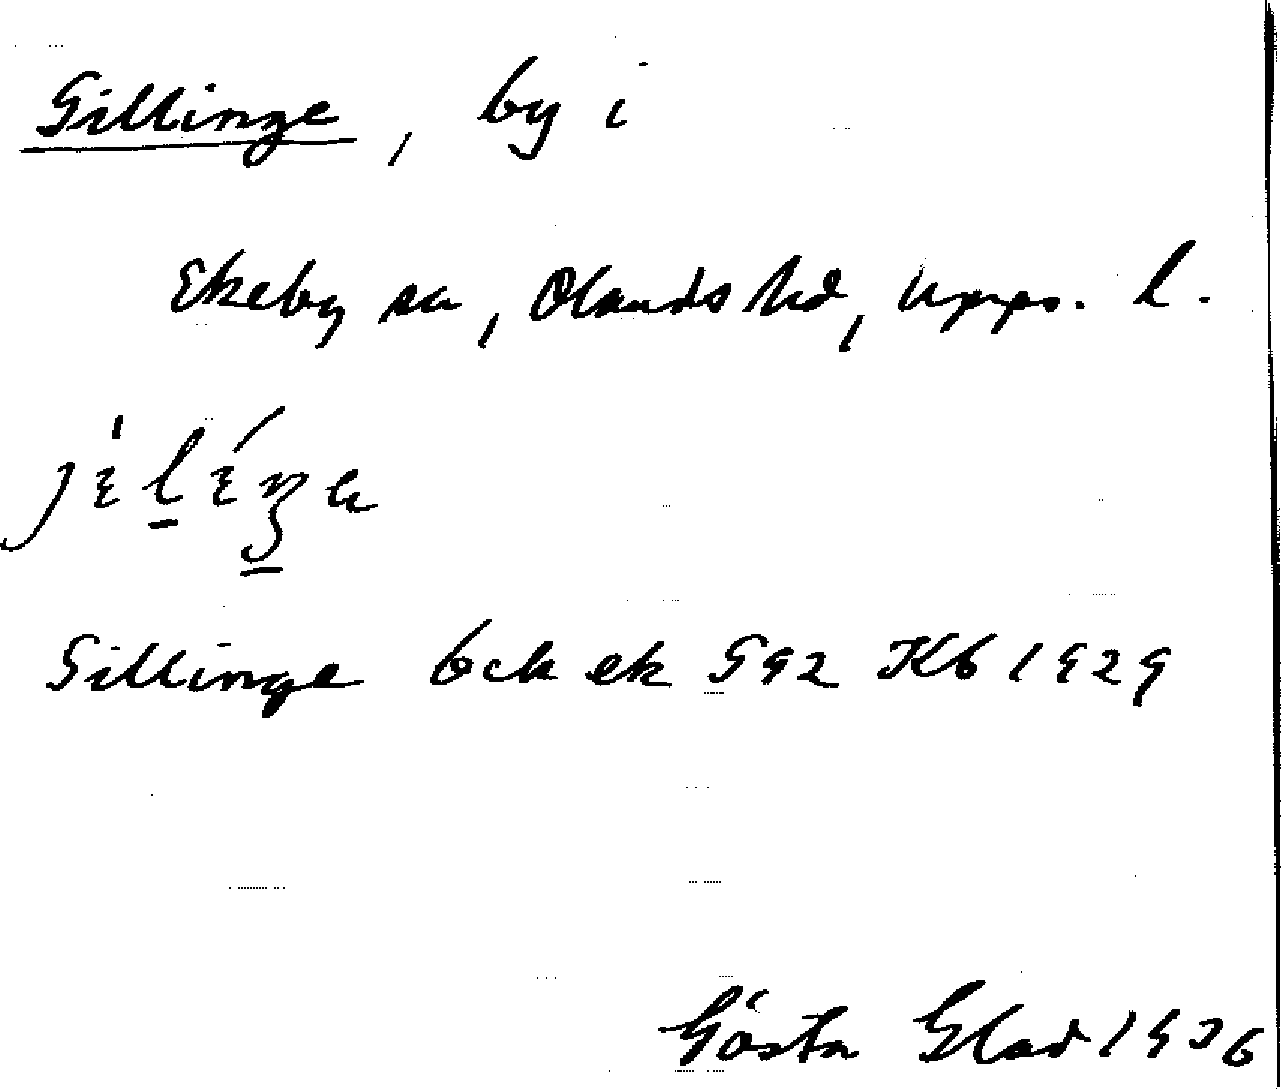 Gillinge, by i
Ekeby sn, Olands hd, Upps. l.
Gillinge bck ek G92 Kb 1929
Gösta Glad 1936